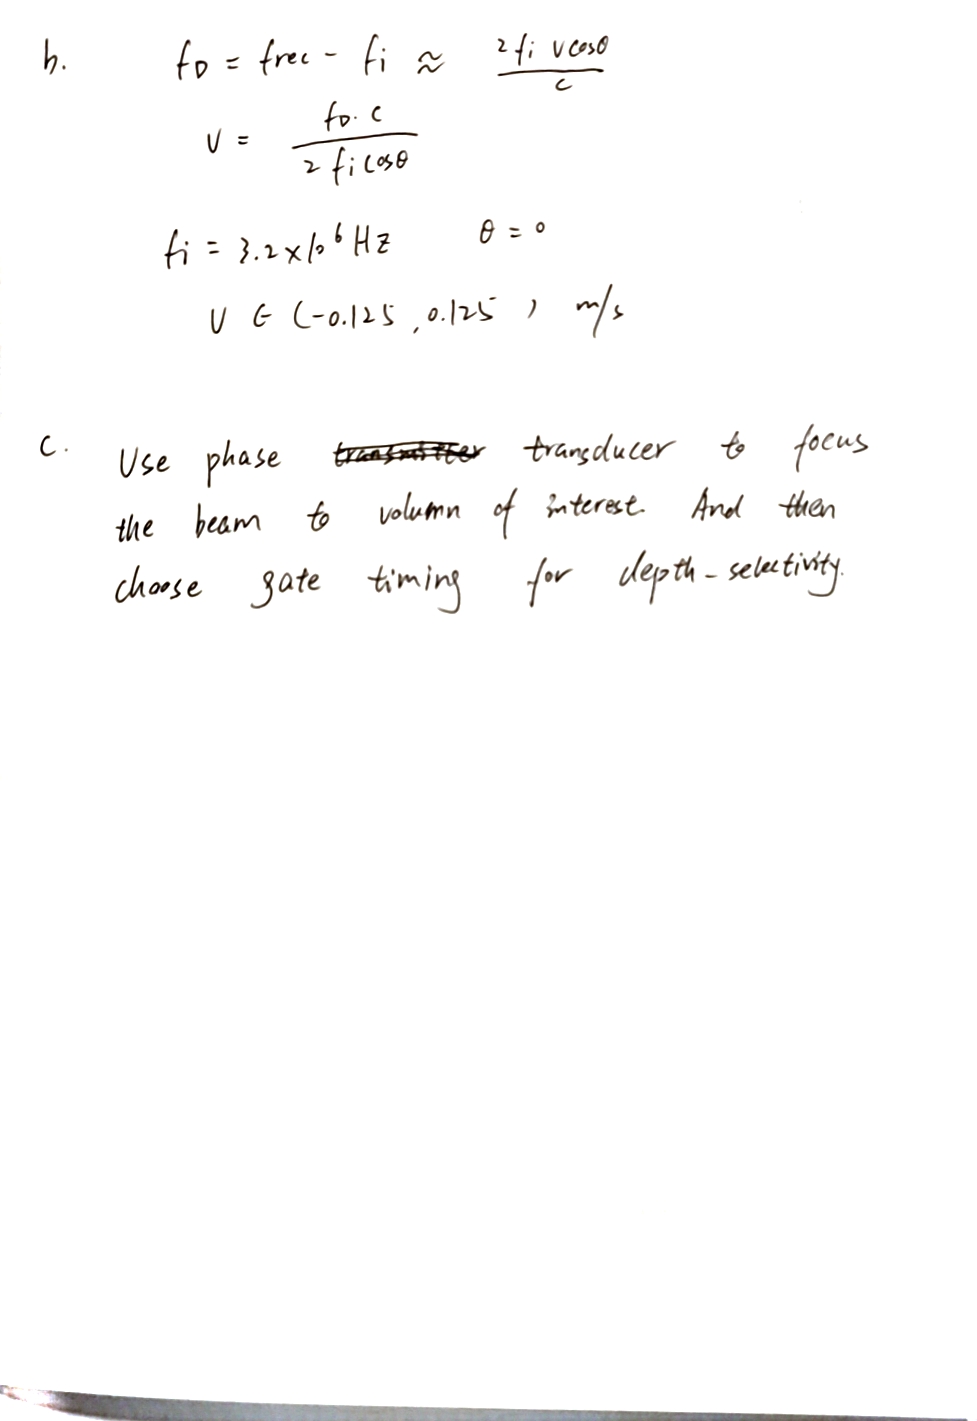 b. f_D = f_rec - f_i ≈ 2 f_i v cosθ / c
v = f_D · c / 2 f_i cosθ
f_i = 3.2 × 10^6 Hz θ = 0
v ∈ (-0.125, 0.125) m/s
c. Use phase transmitter transducer to focus
the beam to volumn of interest. And then
choose gate timing for depth-selectivity.